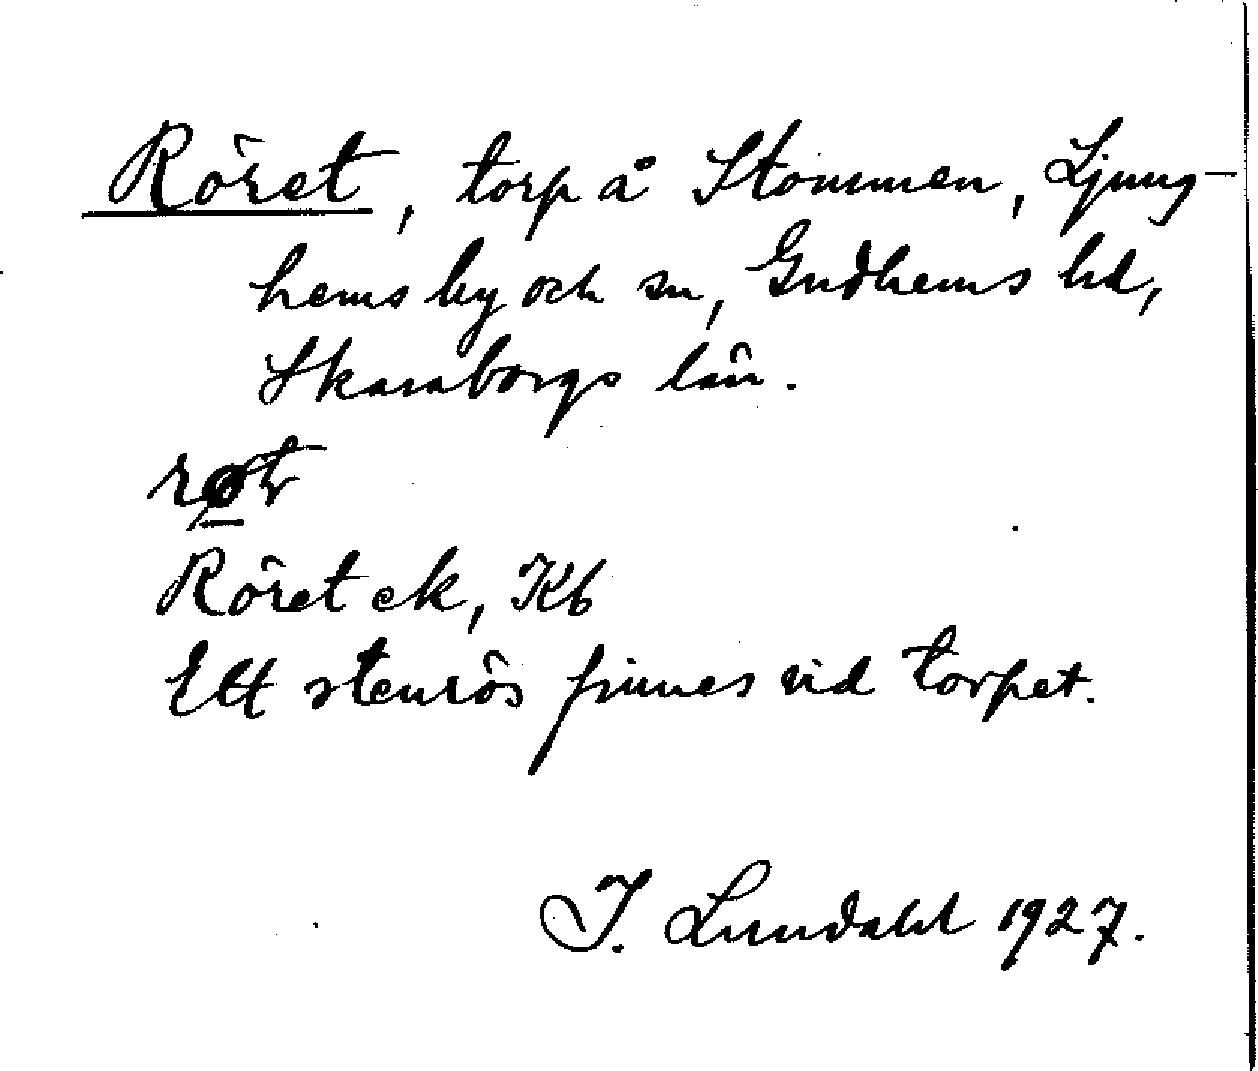 Röret, torp å Stommen, Ljung-
hems by och sn, Gudhems hd,
Skaraborgs län.
Röret ek, Kb
Ett stenrös finnes vid torpet.
I. Lundahl 1927.